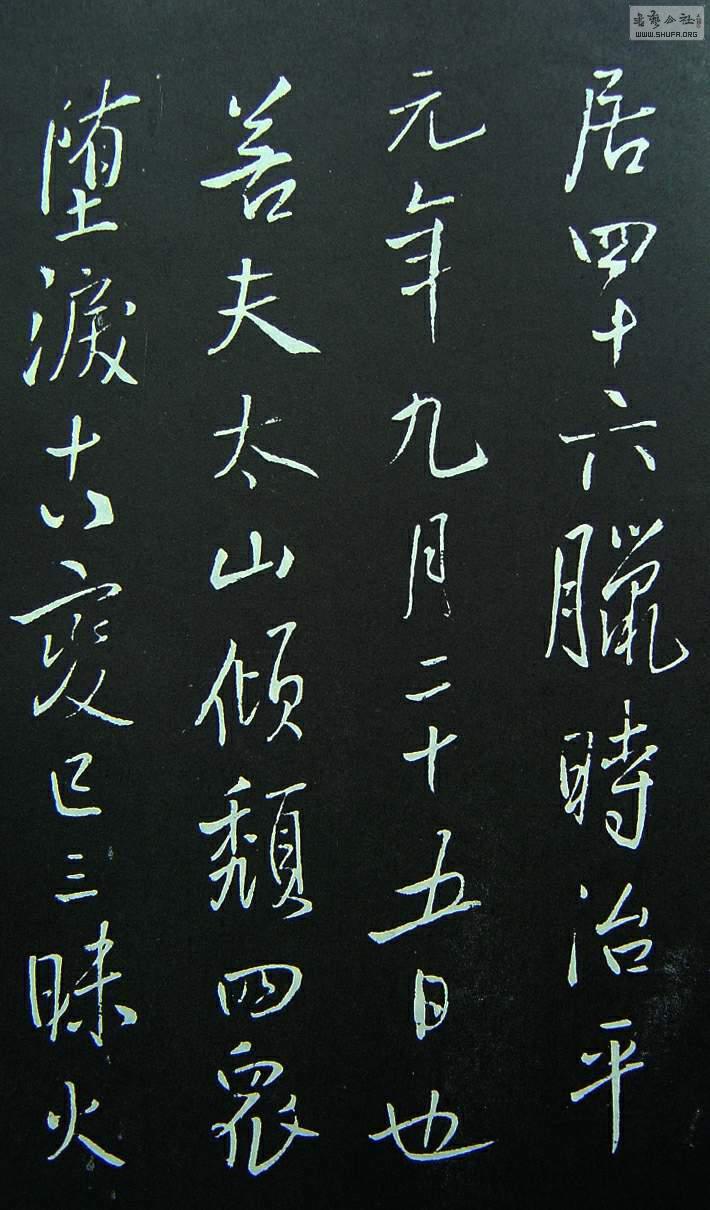 居四十六臘時治平
元年九月二十五日也
若夫太山傾頹四眾
墮淚十八變已三昧火
書藝公社
WWW.SHUFA.ORG